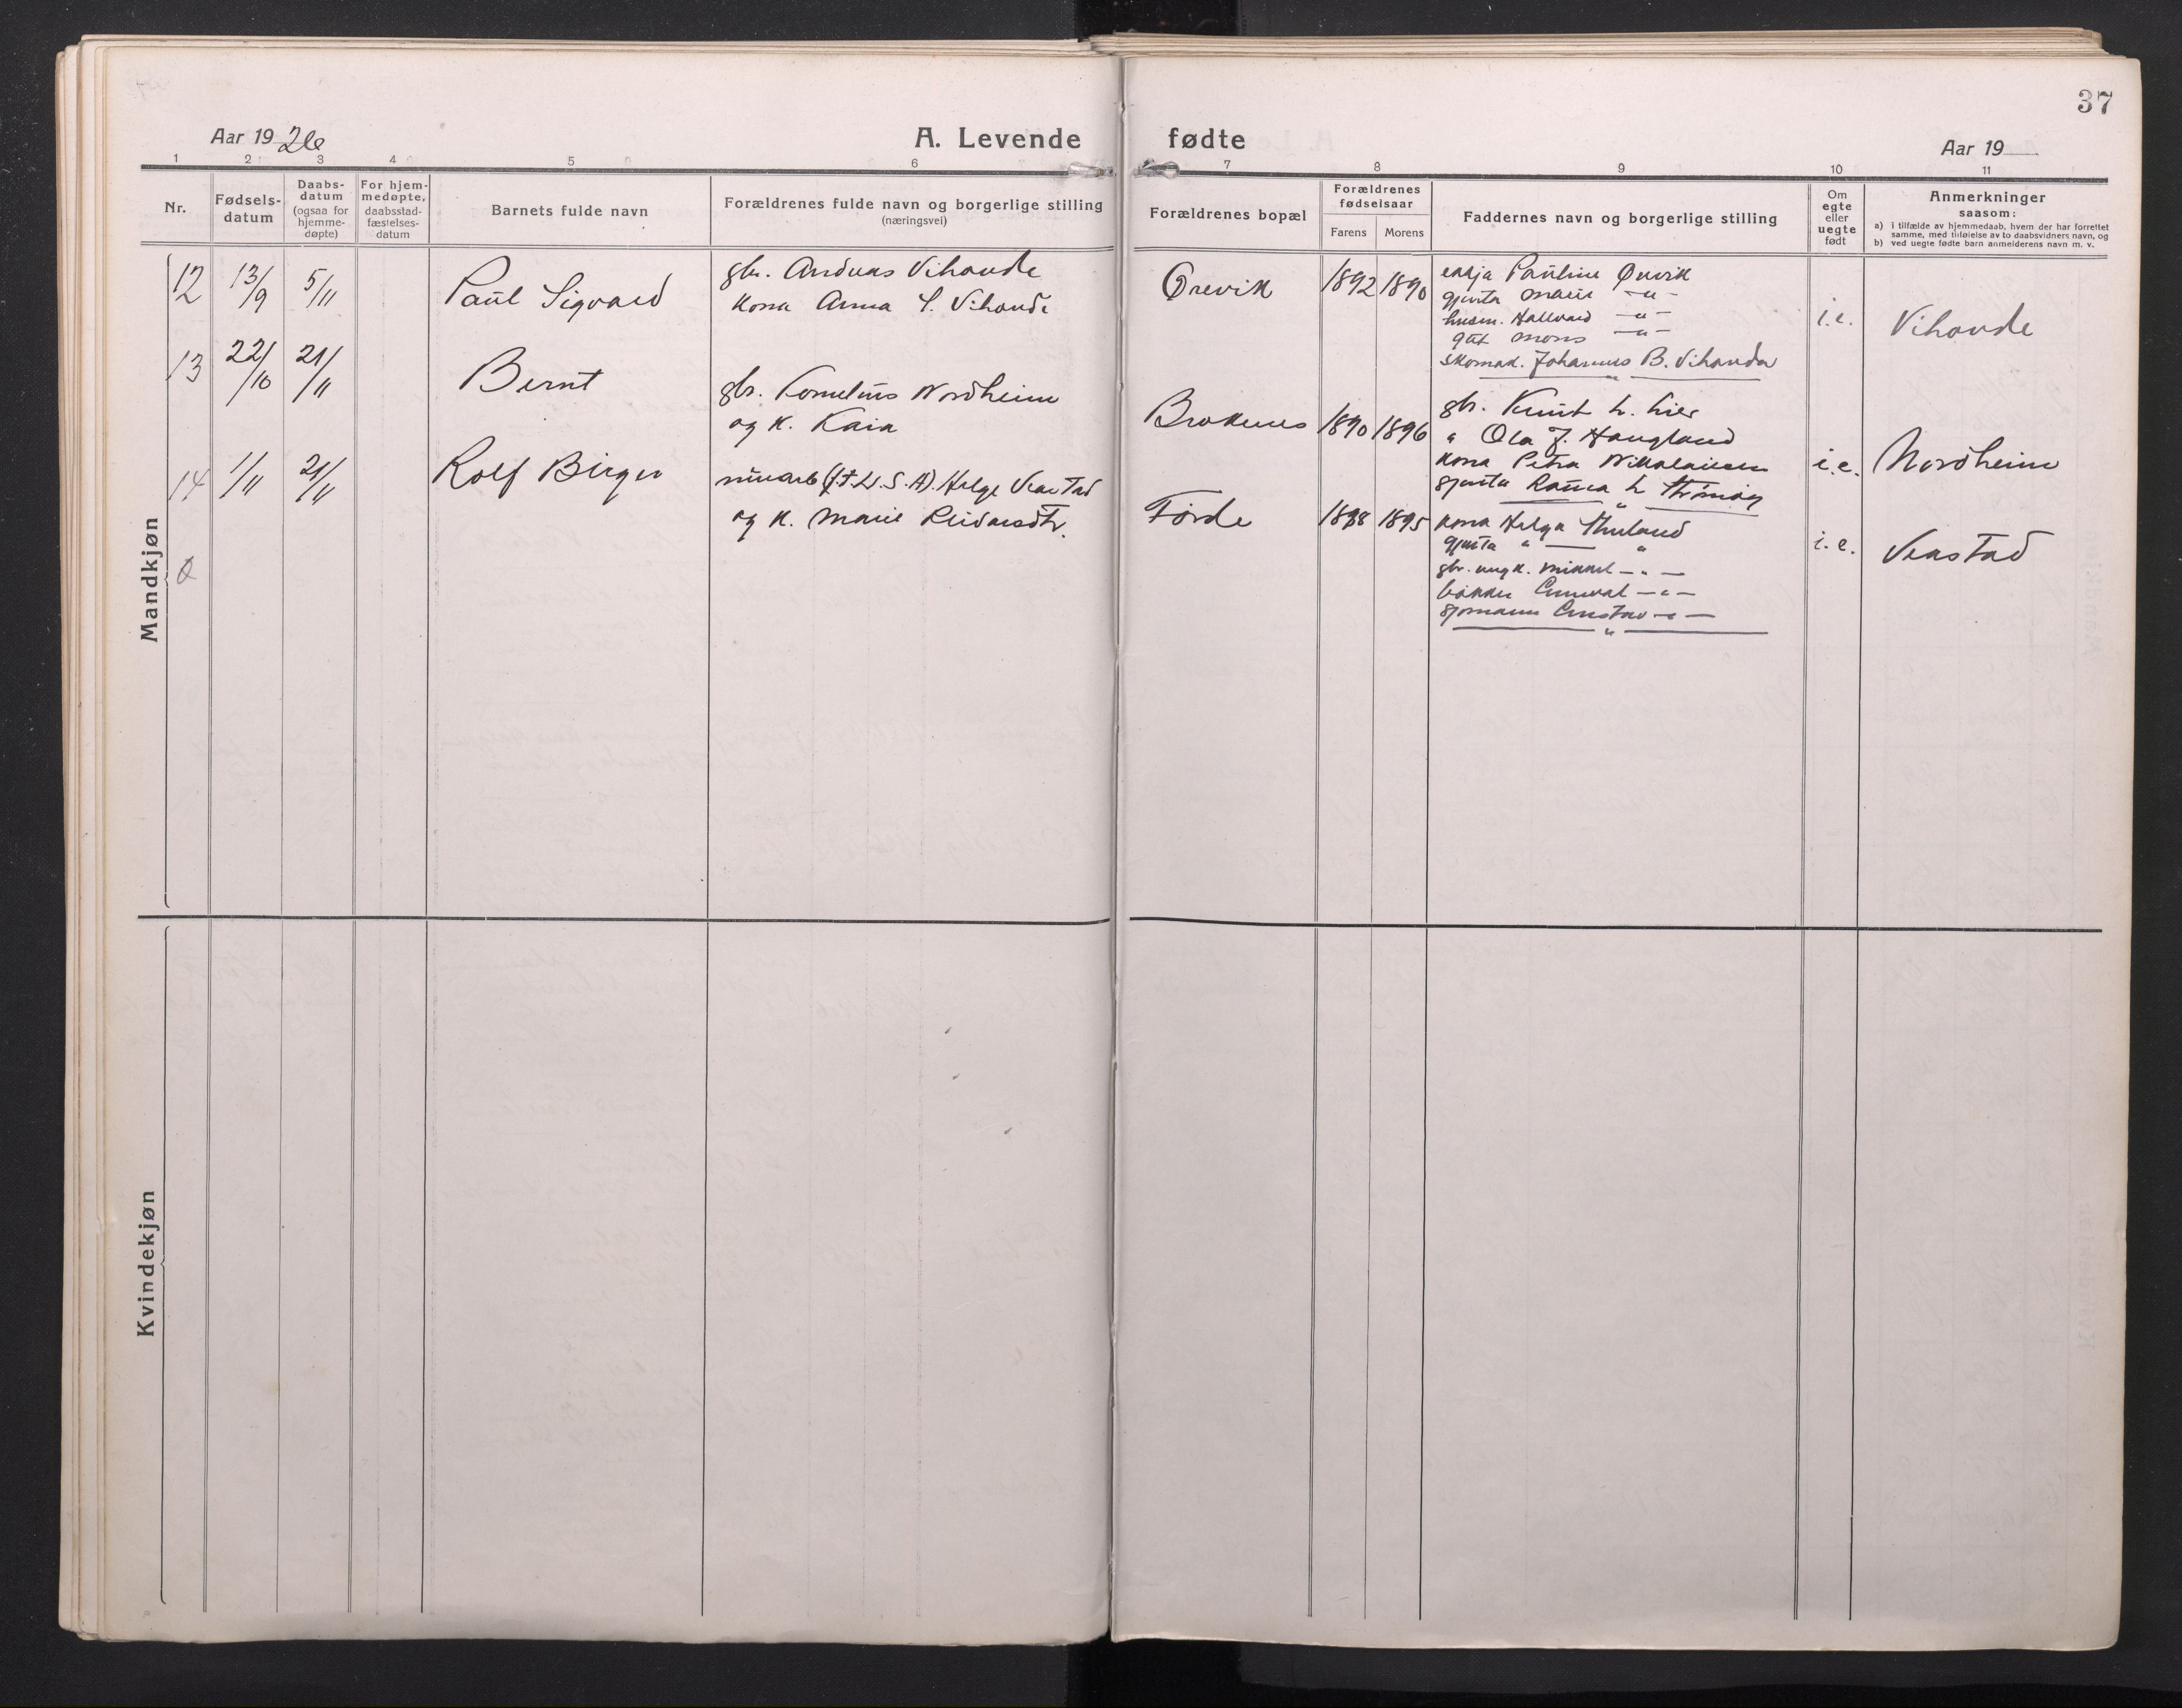 37
Aar 1926
A. Levende fødte
Aar 19
1 2 3 4 5 6 7 8 9 10 11
Nr.
Fødsels-
datum
Daabs-
datum
(ogsaa for
hjemme-
døpte)
For hjem-
medøpte,
daabsstad-
fæstelses-
datum
Barnets fulde navn
Forældrenes fulde navn og borgerlige stilling
(næringsvei)
Forældrenes bopæl
Forældrenes
fødselsaar
Farens Morens
Faddernes navn og borgerlige stilling
Om
egte
eller
uegte
født
Anmerkninger
saasom:
a) i tilfælde av hjemmedaab, hvem der har forrettet
samme, med tilføielse av to daabsvidners navn, og
b) ved uegte fødte barn anmelderens navn m. v.
Mandkjøn
12 13/9 5/11 Paul Sigvard
gbr. Andreas Vihovde
kona Anna S. Vihovde
Ørevik 1892 1890
enkja Pauline Ørevik
gjenta Marie —"—
husm. Hallvard —"—
gut Mons —"—
skomak. Johannes B. Vihovde
i.e. Vihovde
13 22/10 21/11 Bernt
gbr. Kornelius Nordheim
og k. Kaia
1890 1896
gbr. Knut L. Lier
" Ola J. Haugland
kona Petra Nikolaisen
gjenta
i.e. Nordheim
14 1/11 21/11 Rolf Birger
(f. t. U.S.A). Helge Veastad
og k. Marie
Førde 1898 1895
kona Helga
gjenta " — "
gbr. ungk. Mikkel — " —
— " —
sjømann Gustav — " —
i.e. Veastad
Kvindekjøn